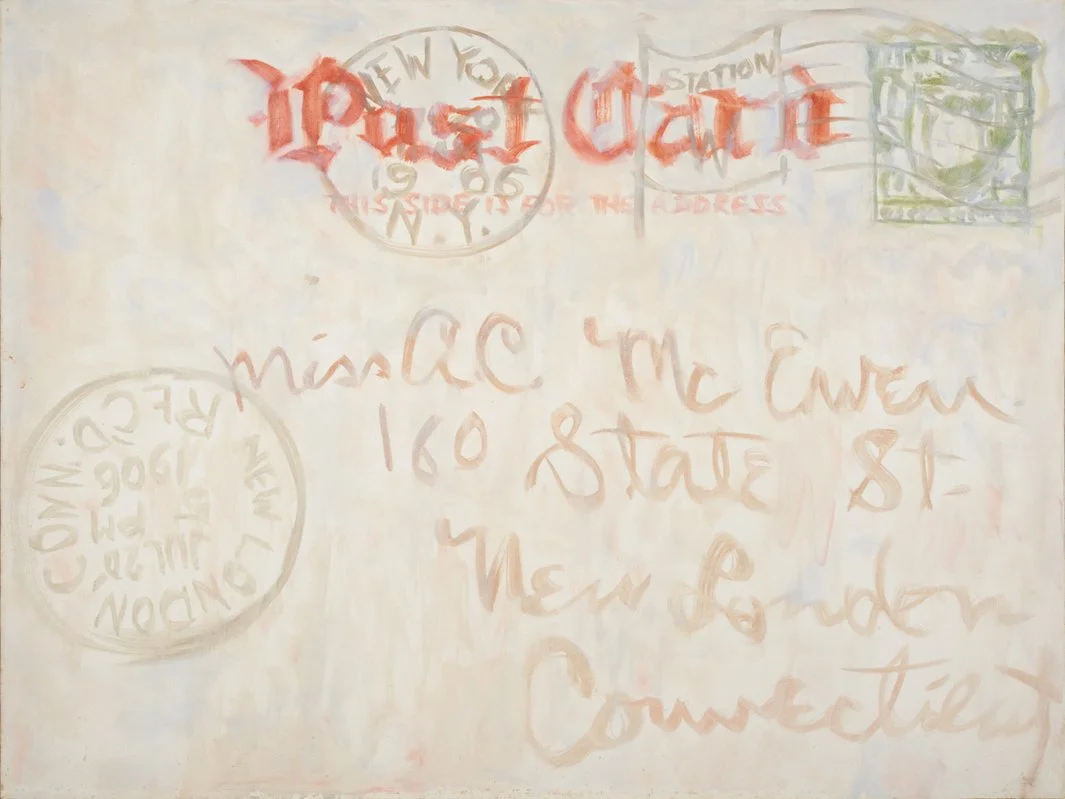 Post Card
THIS SIDE IS FOR THE ADDRESS
NEW YORK
1906
N.Y.
STATION
W
Miss A.C. McEwen
160 State St-
New London
Connecticut
NEW LONDON
CONN.
REC'D.
1906
PM
JUL 20